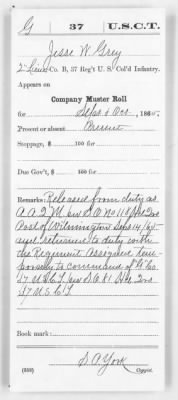 G 37 U.S.C.T.
Jesse W. Grey
2 Lieut, Co. B, 37 Reg't U. S. Col'd Infantry.
Appears on
Company Muster Roll
for Sept & Oct, 1865.
Present or absent Present
Stoppage, $ 100 for
Due Gov't, $ 100 for
Remarks: Released from duty as
A.A.Q.M. per S.O. No 118 Hd Qrs
Post of Wilmington Sept 14/65
and returned to duty with
the Regiment. Assigned tem-
porarily to command of Co.
37 U.S.C.T. per S.O. 81 Hd Qrs
37 U.S.C.T.
Book mark:
S A York
(358) Copyist.